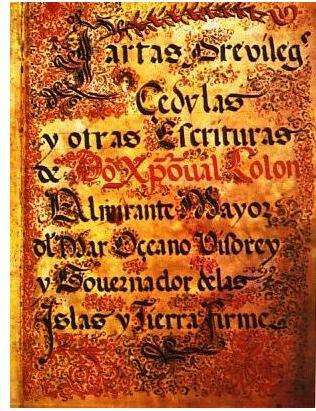 Cartas Previlegˢ
Cedulas
y otras Escrituras
de Dõ Xp̃oual Colon
Almirante Mayor
dl Mar Oçeano Visorey
y Gouernador delas
Islas y Tierra firme